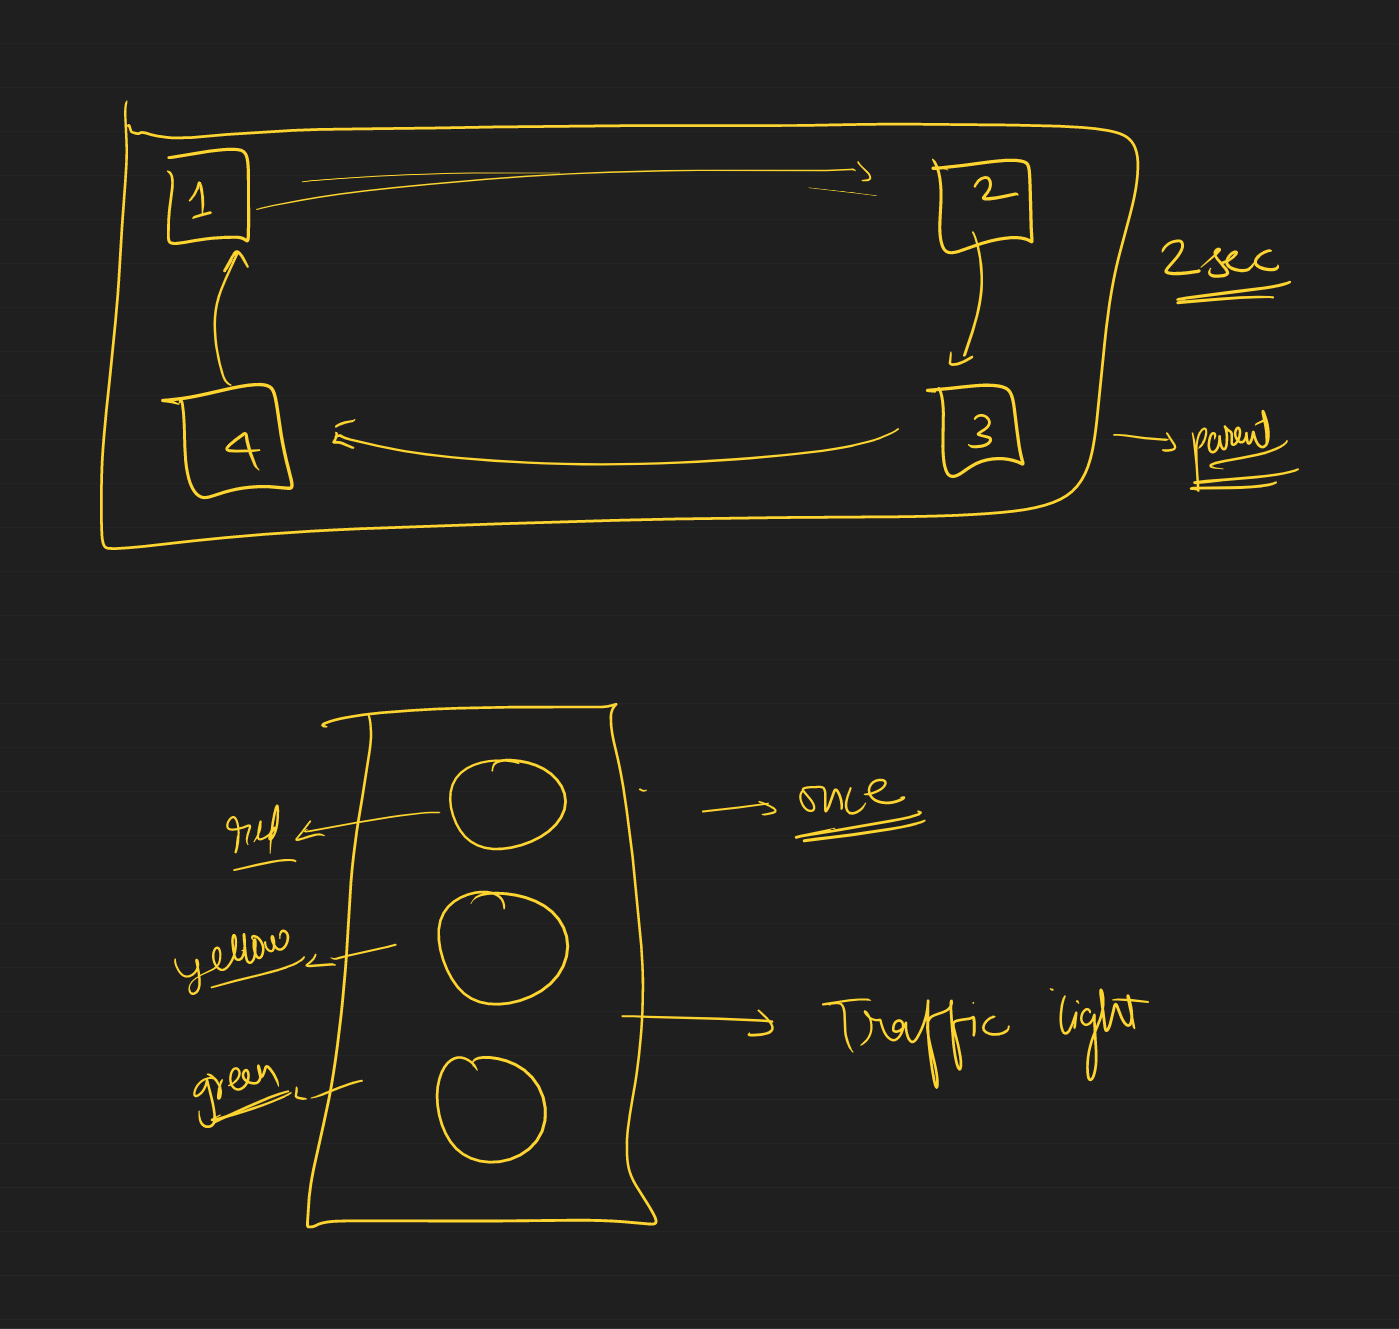 1
2
2 sec
4
3
parent
once
red
yellow
Traffic light
green